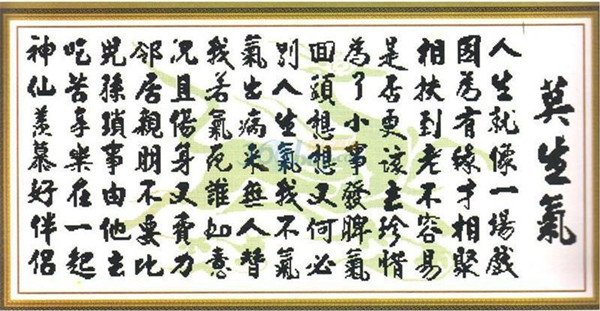 莫生氣
人生就像一場戲
因為有緣才相聚
相扶到老不容易
是否更該去珍惜
為了小事發脾氣
回頭想想又何必
別人生氣我不氣
氣出病來無人替
我若氣死誰如意
況且傷身又費力
鄰居親朋不要比
兒孫瑣事由他去
吃苦享樂在一起
神仙羨慕好伴侶